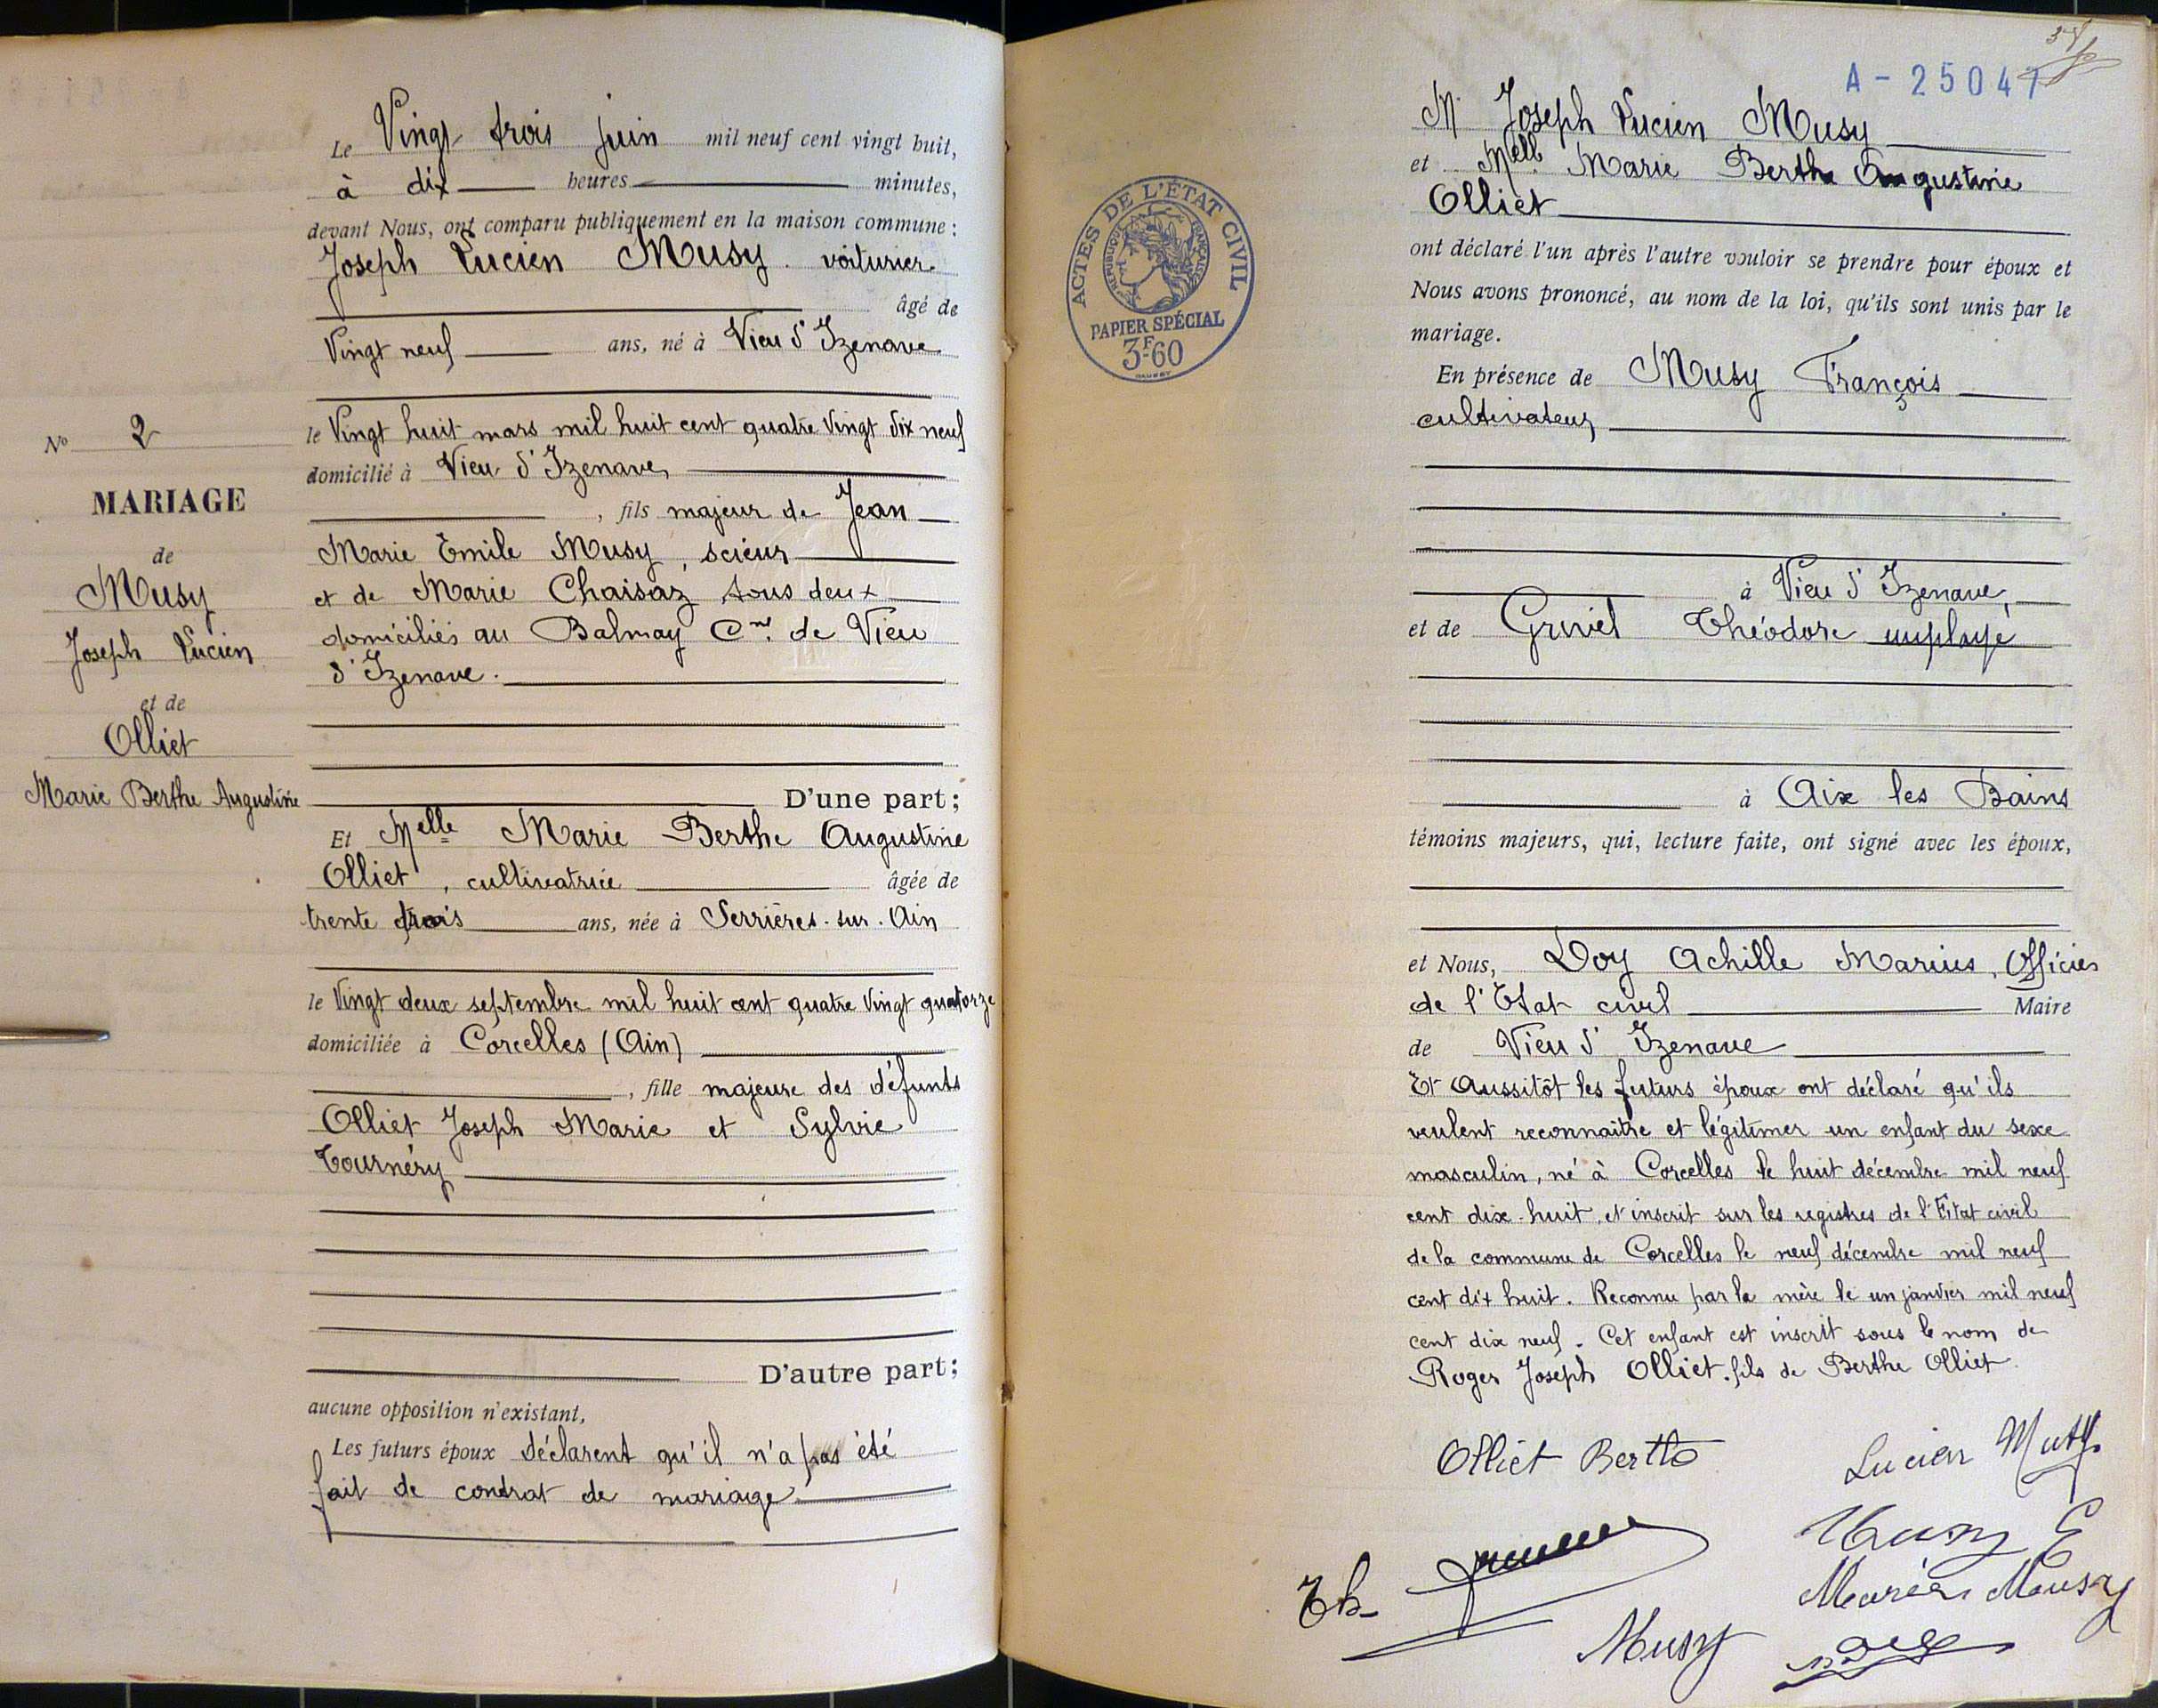 N° 2
MARIAGE
de
Musy
Joseph Lucien
et de
Olliet
Marie Berthe Augustine
Le Vingt trois juin mil neuf cent vingt huit,
à dix heures minutes,
devant Nous, ont comparu publiquement en la maison commune :
Joseph Lucien Musy voiturier
âgé de
Vingt neuf ans, né à Vieu d'Izenave
le Vingt huit mars mil huit cent quatre Vingt dix neuf
domicilié à Vieu d'Izenave,
, fils majeur de Jean
Marie Emile Musy, scieur
et de Marie Chaisaz tous deux
domiciliés au Balmay Cne de Vieu
d'Izenave.
D'une part ;
Et Melle Marie Berthe Augustine
Olliet, cultivatrice âgée de
trente trois ans, née à Serrières-sur-Ain
le Vingt deux septembre mil huit cent quatre Vingt quatorze
domiciliée à Corcelles (Ain)
, fille majeure des défunts
Olliet Joseph Marie et Sylvie
Tournéry
D'autre part ;
aucune opposition n'existant,
Les futurs époux déclarent qu'il n'a pas été
fait de contrat de mariage
A - 25047
M. Joseph Lucien Musy
et Melle Marie Berthe Augustine
Olliet
ont déclaré l'un après l'autre vouloir se prendre pour époux et
Nous avons prononcé, au nom de la loi, qu'ils sont unis par le
mariage.
En présence de Musy François
cultivateur,
à Vieu d'Izenave,
et de Théodore employé
à Aix les Bains
témoins majeurs, qui, lecture faite, ont signé avec les époux,
et Nous, Doy Achille Marius, Officier
de l'Etat civil Maire
de Vieu d'Izenave
Et Aussitôt les futurs époux ont déclaré qu'ils
veulent reconnaître et légitimer un enfant du sexe
masculin, né à Corcelles le huit décembre mil neuf
cent dix-huit, et inscrit sur les registres de l'Etat civil
de la commune de Corcelles le neuf décembre mil neuf
cent dix huit. Reconnu par la mère le un janvier mil neuf
cent dix neuf. Cet enfant est inscrit sous le nom de
Roger Joseph Olliet fils de Berthe Olliet.
Olliet Berthe
Lucien Musy
Musy E
Th
Musy
Musy
ACTES DE L'ÉTAT CIVIL
RÉPUBLIQUE FRANÇAISE
PAPIER SPÉCIAL
3F60